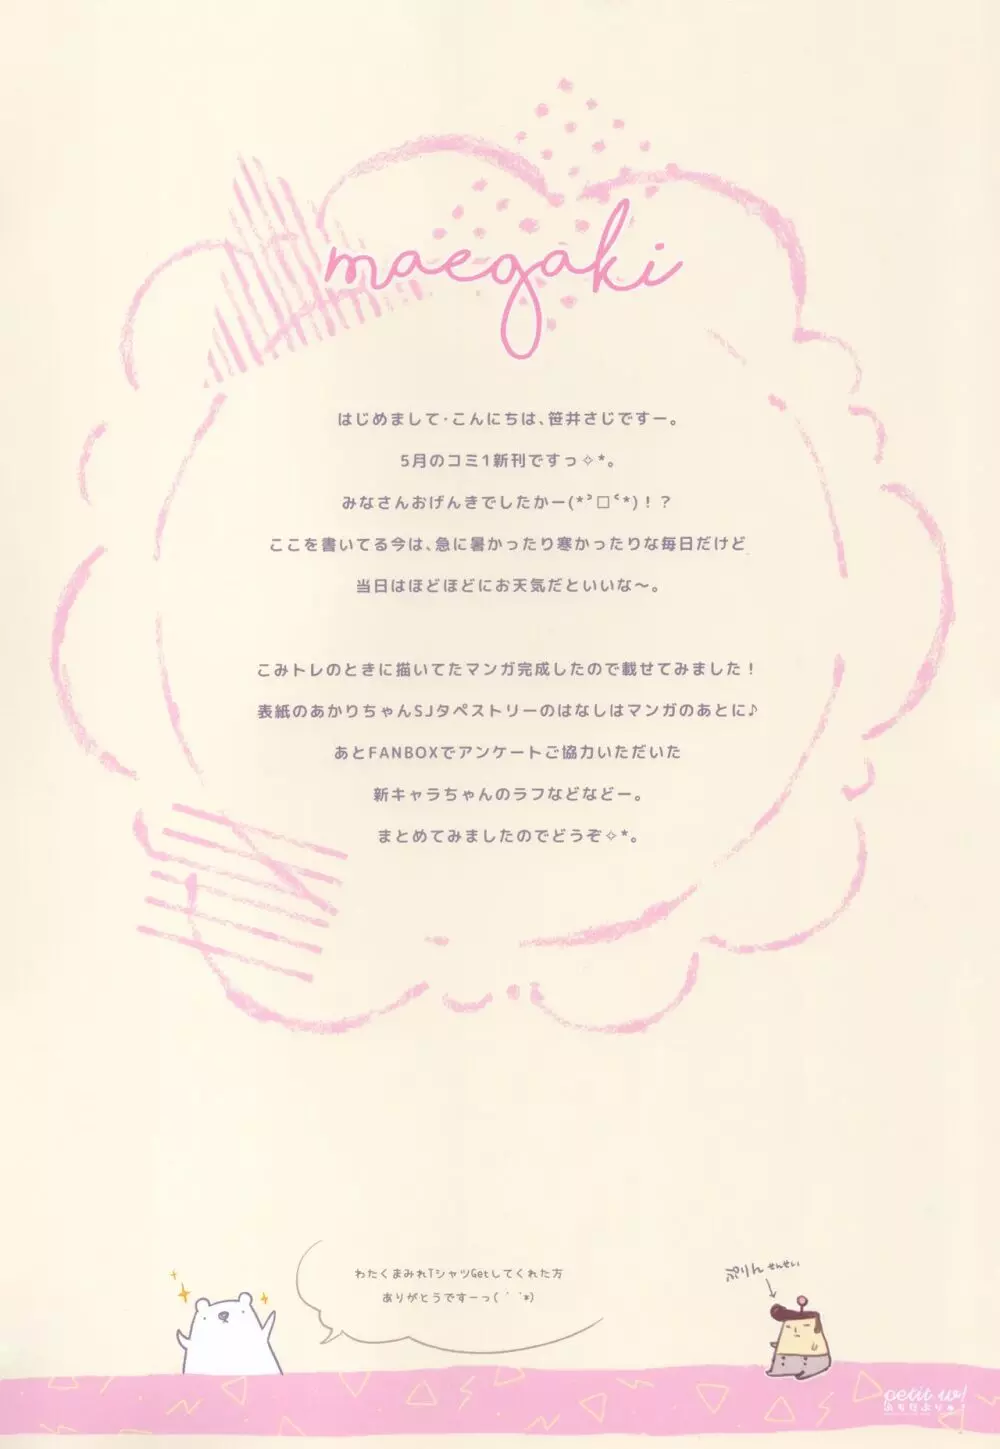 maegaki
はじめまして・こんにちは、笹井さじですー。
5月のコミ1新刊ですっ✧*。
みなさんおげんきでしたかー(*ᐣ□ᐢ*)！？
ここを書いてる今は、急に暑かったり寒かったりな毎日だけど
当日はほどほどにお天気だといいな〜。
こみトレのときに描いてたマンガ完成したので載せてみました！
表紙のあかりちゃんSJタペストリーのはなしはマンガのあとに♪
あとFANBOXでアンケートご協力いただいた
新キャラちゃんのラフなどなどー。
まとめてみましたのでどうぞ✧*。
わたくまみれTシャツGetしてくれた方
ありがとうですーっ( ´ `*)
ぷりん せんせい
petit w!